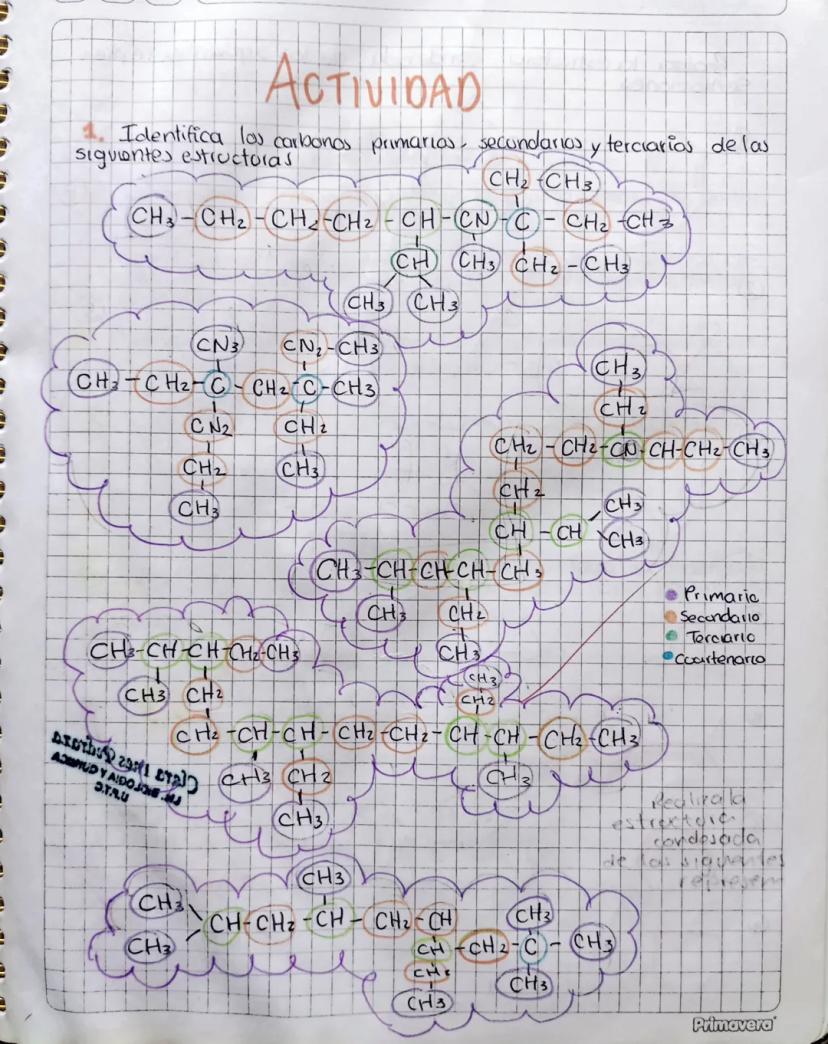 ACTIVIDAD
1. Identifica los carbonos primarios, secundarios y terciarios de las
siguientes estructuras
CH2-CH3
CH3-CH2-CH2-CH2-CH-CN-C-CH2-CH3
CH CH3 CH2-CH3
CH3 CH3
CN3 CN2-CH3
CH3-CH2-C-CH2-C-CH3
CN2 CH2
CH2 CH3
CH3
CH3
CH2
CH2-CH2-CN-CH-CH2-CH3
CH2
CH-CH CH3
CH3
CH3-CH-CH-CH-CH3
CH3 CH2
CH3
Primario
Secundario
Terciario
Cuartenario
CH3-CH-CH-CH2-CH3
CH3 CH2
CH3
CH2
CH2-CH-CH-CH2-CH2-CH-CH-CH2-CH3
CH3 CH2 CH3
CH3
Clara Ines Pedraza
LIC. BIOLOGIA Y QUIMICA
U.P.T.C.
Realiza la
estructura
condesada
de las siguientes
CH3
CH3
CH-CH2-CH-CH2-CH
CH3
CH3
CH-CH2-C-CH3
CH3
CH3
Primavera